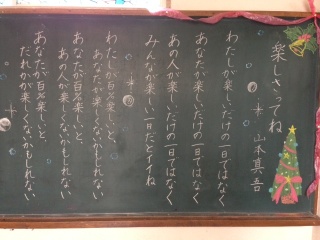 楽しさってね
山本真吾
わたしが楽しいだけの一日ではなく
あなたが楽しいだけの一日ではなく
あの人が楽しいだけの一日ではなく
みんなが楽しい一日だとイイね
わたしが百%楽しいと、
あなたが楽しくないかもしれない
あなたが百%楽しいと、
あの人が楽しくないかもしれない
あなたが百%楽しいと、
だれかが楽しくないかもしれない